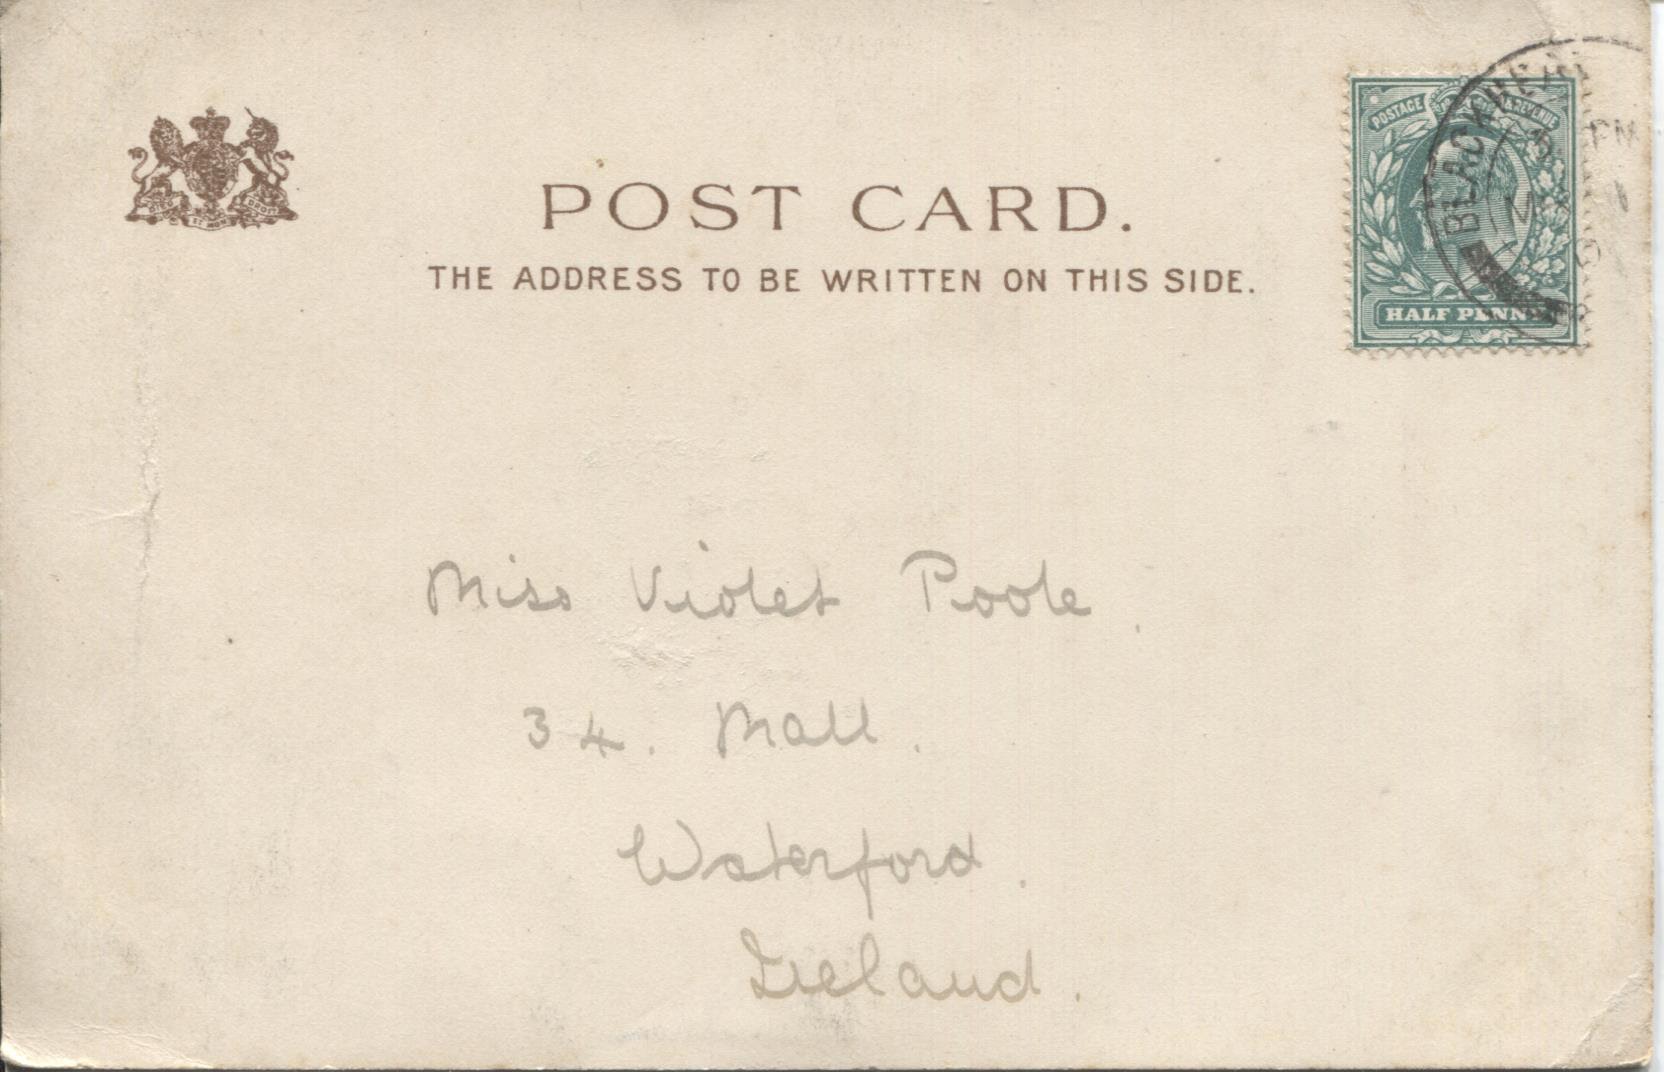 POST CARD.
THE ADDRESS TO BE WRITTEN ON THIS SIDE.
POSTAGE & REVENUE
HALF PENNY
BLACKHEATH
PM
Miss Violet Poole
34. Mall.
Waterford.
Ireland.